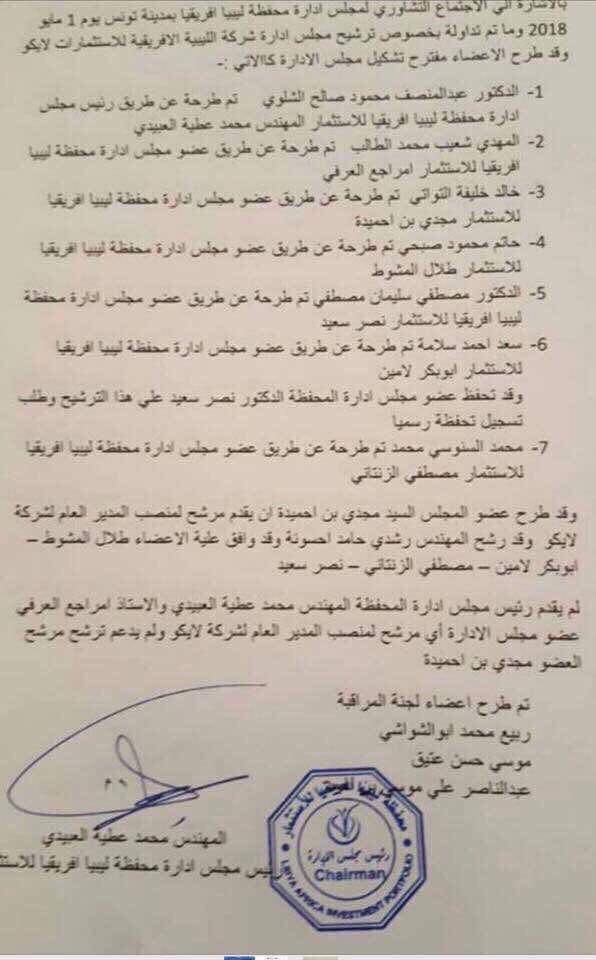 بالاشارة الي الاجتماع التشاوري لمجلس ادارة محفظة ليبيا افريقيا بمدينة تونس يوم 1 مايو
2018 وما تم تداولة بخصوص ترشيح مجلس ادارة شركة الليبية الافريقية للاستثمارات لايكو
وقد طرح الاعضاء مقترح تشكيل مجلس الادارة كالاتي :-
1- الدكتور عبدالمنصف محمود صالح الشلوي تم طرحة عن طريق رئيس مجلس
ادارة محفظة ليبيا افريقيا للاستثمار المهندس محمد عطية العبيدي
2- المهدي شعيب محمد الطالب تم طرحة عن طريق عضو مجلس ادارة محفظة ليبيا
افريقيا للاستثمار امراجع العرفي
3- خالد خليفة التواتي تم طرحة عن طريق عضو مجلس ادارة محفظة ليبيا افريقيا
للاستثمار مجدي بن احميدة
4- حاتم محمود صبحي تم طرحة عن طريق عضو مجلس ادارة محفظة ليبيا افريقيا
للاستثمار طلال المشوط
5- الدكتور مصطفي سليمان مصطفي تم طرحة عن طريق عضو مجلس ادارة محفظة
ليبيا افريقيا للاستثمار نصر سعيد
6- سعد احمد سلامة تم طرحة عن طريق عضو مجلس ادارة محفظة ليبيا افريقيا
للاستثمار ابوبكر لامين
وقد تحفظ عضو مجلس ادارة المحفظة الدكتور نصر سعيد علي هذا الترشيح وطلب
تسجيل تحفظة رسميا
7- محمد السنوسي محمد تم طرحة عن طريق عضو مجلس ادارة محفظة ليبيا افريقيا
للاستثمار مصطفي الزنتاني
وقد طرح عضو المجلس السيد مجدي بن احميدة ان يقدم مرشح لمنصب المدير العام لشركة
لايكو وقد رشح المهندس رشدي حامد احسونة وقد وافق علية الاعضاء طلال المشوط –
ابوبكر لامين – مصطفي الزنتاني – نصر سعيد
لم يقدم رئيس مجلس ادارة المحفظة المهندس محمد عطية العبيدي والاستاذ امراجع العرفي
عضو مجلس الادارة أي مرشح لمنصب المدير العام لشركة لايكو ولم يدعم ترشح مرشح
العضو مجدي بن احميدة
تم طرح اعضاء لجنة المراقبة
ربيع محمد ابوالشواشي
موسي حسن عتيق
عبدالناصر علي موسي
المهندس محمد عطية العبيدي
رئيس مجلس ادارة محفظة ليبيا افريقيا للاستث
محفظة ليبيا افريقيا للاستثمار
رئيس مجلس الإدارة
Chairman
LIBYA AFRICA INVESTMENT PORTFOLIO